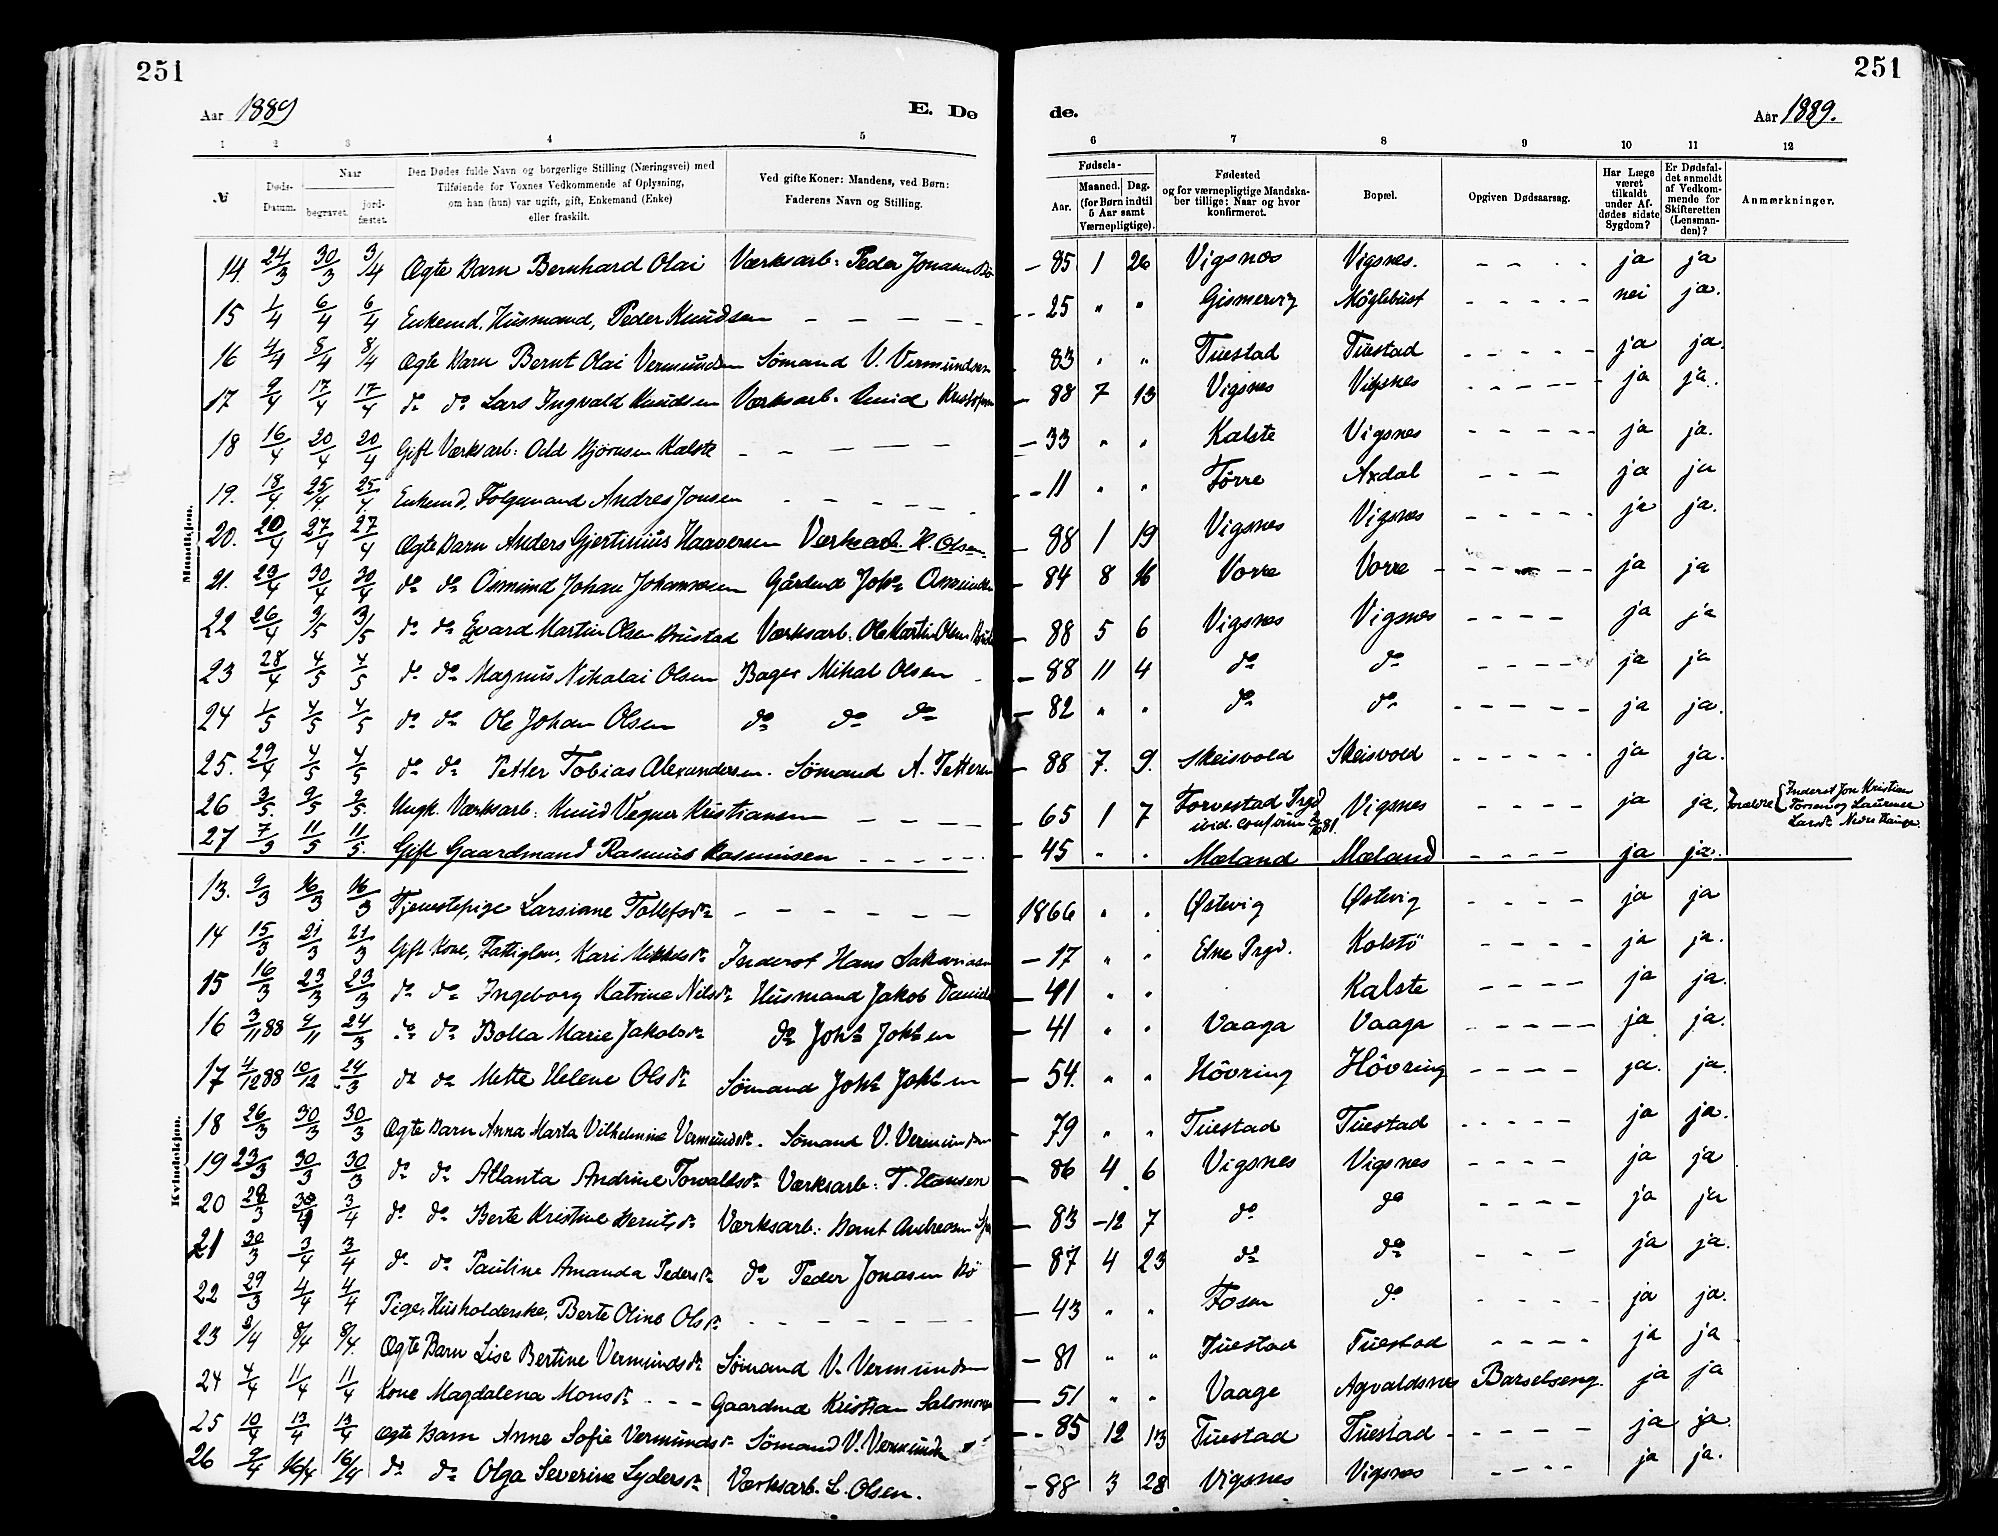 251
251
Aar 1889
E. Dø
de.
Aar 1889.
1 2 3 4 5 6 7 8 9 10 11 12
№
Døds-Datum.
Naar
begravet.
jordfæstet.
Den Dødes fulde Navn og borgerlige Stilling (Næringsvei) med
Tilføiende for Voxnes Vedkommende af Oplysning,
om han (hun) var ugift, gift, Enkemand (Enke)
eller fraskilt.
Ved gifte Koner: Mandens, ved Børn:
Faderens Navn og Stilling.
Fødsels-
Aar. Maaned. Dag.
(for Børn indtil
5 Aar samt
Værnepligtige).
Fødested
og for værnepligtige Mandska-
ber tillige: Naar og hvor
konfirmeret.
Bopæl.
Opgiven Dødsaarsag.
Har Læge
været
tilkaldt
under Af-
dødes sidste
Sygdom?
Er Dødsfal-
det anmeldt
af Vedkom-
mende for
Skifteretten
(Lensman-
den)?
Anmærkninger.
Mandkjøn.
14. 24/3 30/3 3/4 Ægte Barn Bernhard Olai Værksarb: Peder Jonasen Bö – 85 1 26 Vigsnes Vigsnes. - - - - ja ja
15 1/4 6/4 6/4 Enkemd. Husmand, Peder Knudsen – – – – – 25 " " Gismervig Möglebust - - - - - nei ja.
16 4/4 8/4 8/4 Ægte Barn Bernt Olai Vermundsen Sömand V. Vermundsen 83 " " Tuestad Tuestad - - - - - ja ja.
17 9/4 17/4 17/4 do do Lars Ingvald Knudsen Værksarb. Knud Kristofersen – 88 7 13 Vigsnes Vigsnes - - - - - ja ja.
18 16/4 20/4 20/4 Gift Værksarb: Odd Björnsen Kalste – – – – – 33 " " Kalste Vigsnes - - - - - ja ja.
19. 18/4 25/4 25/4 Enkemd. Folgemand Andres Jonsen – – – – – 11 " " Förre Axdal - - - ja ja
20. 20/4 27/4 27/4 Ægte Barn Anders Gjertinius Haaversen Værksarb. H. Olsen – 88 1 19 Vigsnes Vigsnes - - - - - ja ja.
21. 23/4 30/4 30/4 do do Osmund Johan Johannesen Gårdmd Johs Osmundsen – 84 8 16 Vorre Vorre - - - - - ja ja
22 26/4 3/5 3/5 do do Evard Martin Olsen Brustad Værksarb: Ole Martin Olsen – 88 5 6 Vigsnes Vigsnes - - - - ja ja
23 28/4 4/5 4/5 do do Magnus Nikolai Olsen Bager Mikal Olsen – 88 11 4 do do - - - - ja ja
24 1/5 4/5 4/5 do do Ole Johan Olsen do do do – 82 " " do do - - - - - ja ja.
25. 29/4 4/5 4/5 do do Petter Tobias Alexandersen. Sömand A. Pettersen – 88 7. 9. Skeisvold Skeisvold - - - - - ja ja.
26 3/5 9/5 9/5 Ungk. Værksarb: Knud Vegner Kristiansen – – – – – 65 1 7 Torvestad Prgd Vigsnes - - - - ja ja. Forældre { Inderst Jon Kristian
27 7/3 11/5 11/5 Gift Gaardmand Rasmus Rasmusen – – – – – 45 " " Mæland Mæland - - - - ja ja.
Kvindekjøn.
13. 9/3 16/3 16/3 Tjenestepige Larsiane Tollefsdr – – – – – – 1866 " " Östevig Östevig - - - - ja ja
14 15/3 21/3 21/3 Gift Kone, Fattiglem, Kari Mikkelsdr Inderst Hans Sakariasen – 17 " " Etne Prgd. Kolstö - - - - ja ja.
15 16/3 23/3 23/3 do do Ingeborg Katrine Nilsdr Husmand Jakob – 41 " " Kalste - - - - ja ja.
16 3/11 88 9/11 24/3 do do Bolla Marie Jakobsdr do Johs Johsen – 41 " " Vaaga Vaaga - - - - - ja ja.
17 4/12 88 10/12 24/3 do do Mette Helene Olsdr Sömand Johs Johsen – 54. " " Hövring Hövring - - - - ja. ja.
18 26/3 30/3 30/3 Ægte Barn Anna Marta Vilhelmine Vermundsdr. Sömand V. Vermundsen – 79 " " Tuestad Tuestad - - - - - ja ja.
19 23/3 30/3 30/3 do do Atlanta Andrine Torvaldsdr Værksarb: T. Hansen – 86 4 6 Vigsnes Vigsnes - - - - ja ja
20 28/3 3/4 do do Berte Kristine Berntsdr Værksarb: Bernt Andreasen – 83 - 12 7 do do - - - - ja ja
21 30/3 3/4 3/4 do do Pauline Amanda Pedersdr do Peder Jonasen Bö – 87 4 23 do do - - - ja ja.
22 29/3 4/4 4/4 Pige, Husholderske, Berte Oline Olsdr – – – – – – 43 " " Fosen do - - - - ja ja.
23 2/4 8/4 8/4 Ægte Barn Lise Bertine Vermundsdr Sömand V. Vermundsen – 81 " " Tuestad Tuestad - - - - ja ja
24 4/4 11/4 11/4 Kone Magdalena Monsdr - - - Gaardmd Kristian Salomonsen – 51 " " Vaage Agvaldsnes Barselseng. ja ja
25 10/4 13/4 13/4 Ægte Barn Anne Sofie Vermundsdr Sömand V. Vermundsen – 85 12 13 Tuestad Tuestad - - - - - ja ja.
26 9/4 16/4 16/4 do do Olga Severine Lydersdr Værksarb. L. Olsen. – 88 3 28 Vigsnes Vigsnes - - - - ja ja.